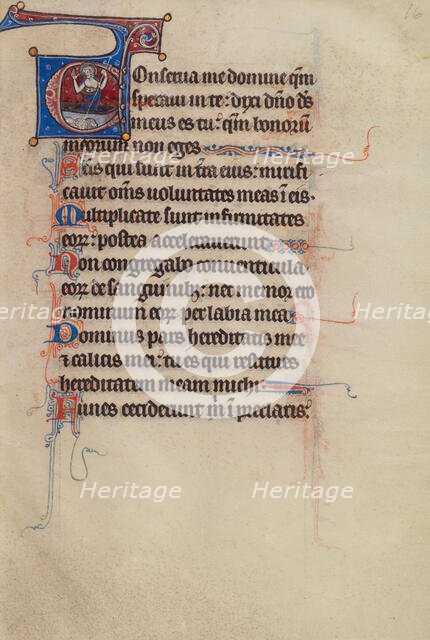 16
Conserva me domine qm̄
speravi in te: dixi dn̄o ds̄
meus es tu: qm̄ bonorū
meorum non eges
Sc̄is qui sunt in tr̄a eius: mirifi
cavit om̄s voluntates meas ī eis.
Multiplicate sunt infirmitates
eoꝝ: postea acceleraverunt
Non congregabo conventicula
eoꝝ de sanguinibꝫ: nec memor ero
nominum eoꝝ per labia mea
Dominus pars hereditatis mee
⁊ calicis mei: tu es qui restitues
hereditatem meam michi
Funes ceciderunt m̄ ī preclaris:
Heritage
Heritage
Heritage
Heritage
Heritage
Heritage